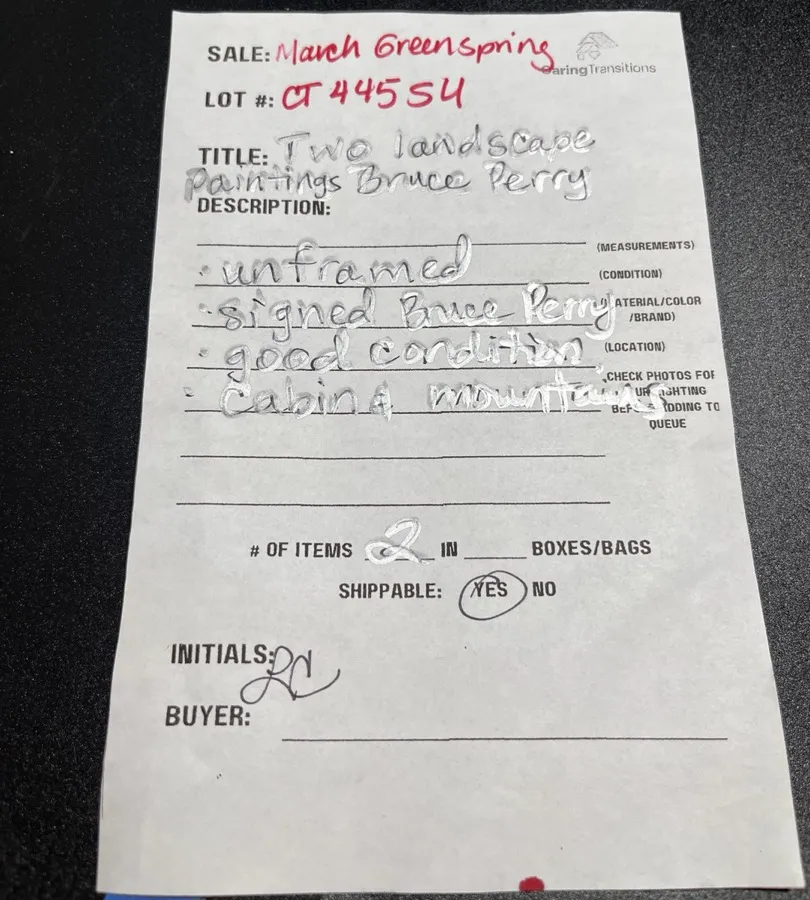 SALE: March Greenspring
aringTransitions
LOT #: CT 445 SU
TITLE: Two landscape
Paintings Bruce Perry
DESCRIPTION:
(MEASUREMENTS)
· unframed (CONDITION)
· signed Bruce Perry ATERIAL/COLOR
/BRAND)
· good condition (LOCATION)
CHECK PHOTOS FOR
· cabin & mountains
TO
QUEUE
# OF ITEMS 2 IN ____ BOXES/BAGS
SHIPPABLE: YES NO
INITIALS: LC
BUYER: